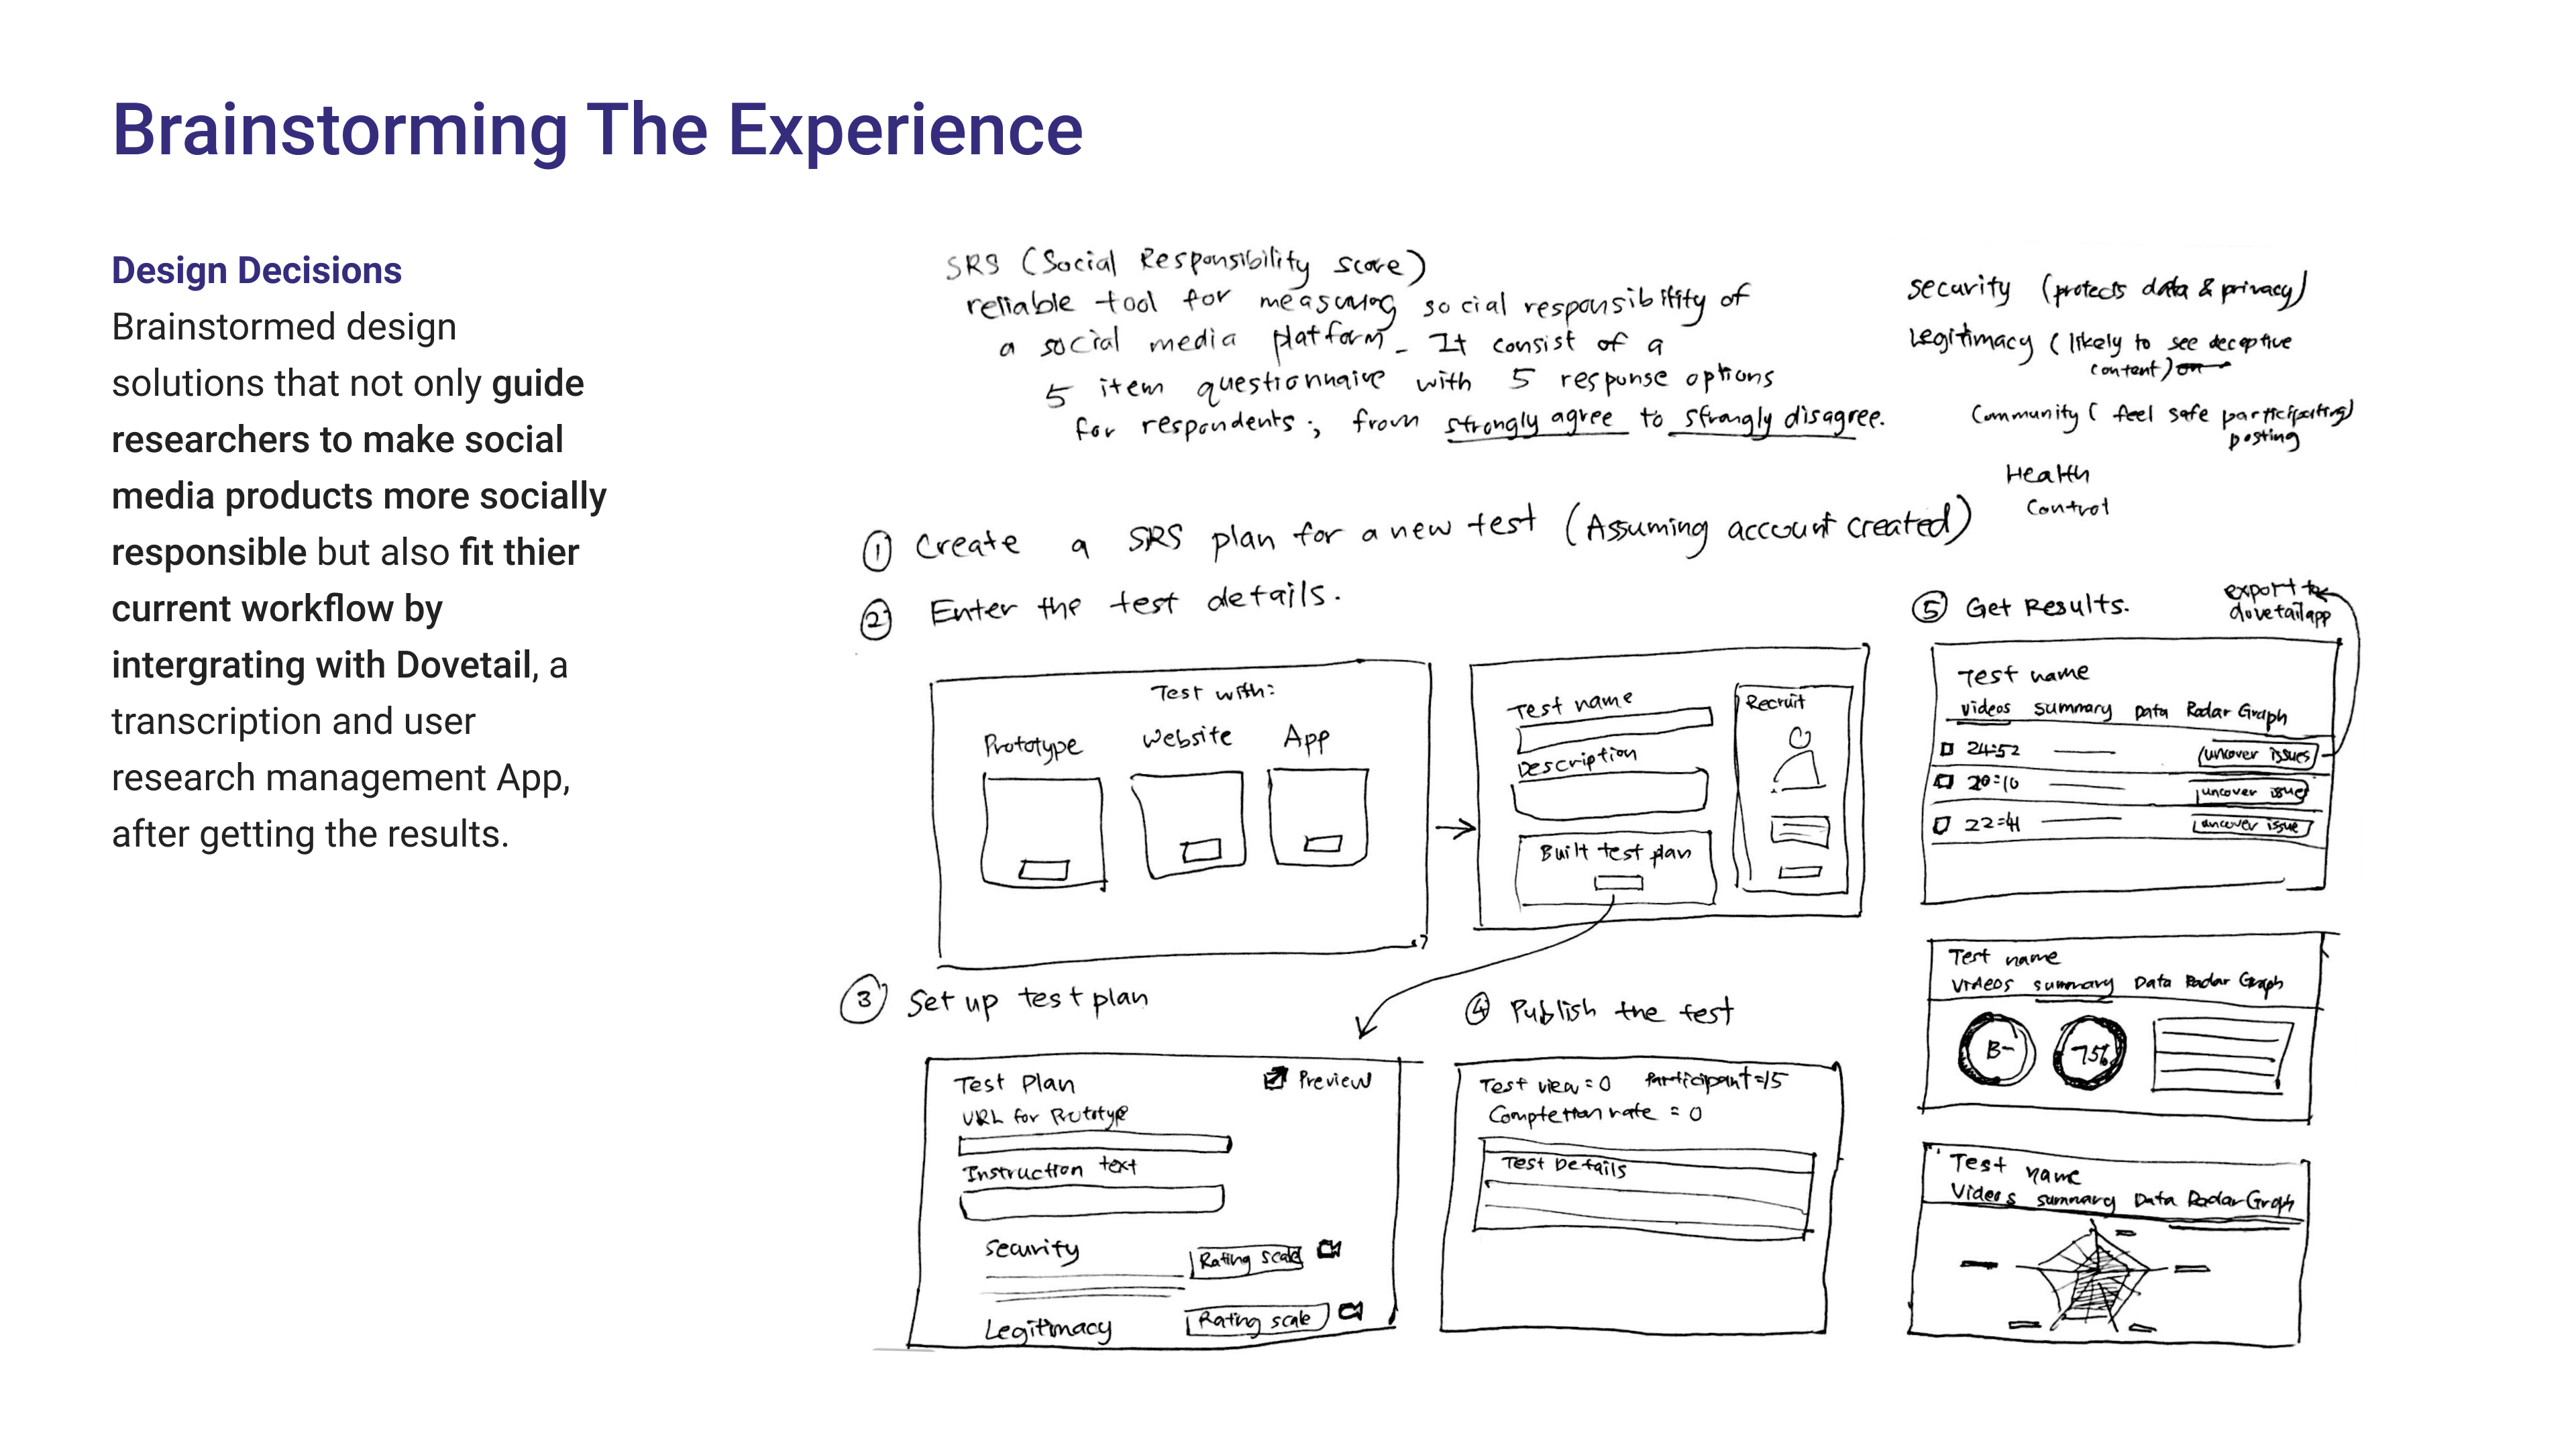 Brainstorming The Experience
Design Decisions
Brainstormed design
solutions that not only guide
researchers to make social
media products more socially
responsible but also fit thier
current workflow by
intergrating with Dovetail, a
transcription and user
research management App,
after getting the results.
SRS (Social Responsibility score)
reliable tool for measuring social responsibility of
a social media platform. It consist of a
5 item questionnaire with 5 response options
for respondents; from strongly agree to strongly disagree.
security (protects data & privacy)
Legitimacy (likely to see deceptive
content)
Community (feel safe participating)
posting
Health
Control
① Create a SRS plan for a new test (Assuming account created)
② Enter the test details.
Test with:
Prototype Website App
Test name
Description
Built test plan
Recruit
③ Set up test plan
Test Plan
Preview
URL for Prototype
Instruction text
Security
Rating scale
Legitimacy
Rating scale
④ Publish the test
Test view = 0 Participant = 15
Completion rate = 0
Test Details
⑤ Get Results.
export to
dovetailapp
Test name
Videos Summary Data Radar Graph
24:52 uncover issues
20:10 uncover issue
22:41 uncover issue
Test name
Videos summary Data Radar Graph
B- 75%
Test name
Videos summary Data Radar Graph